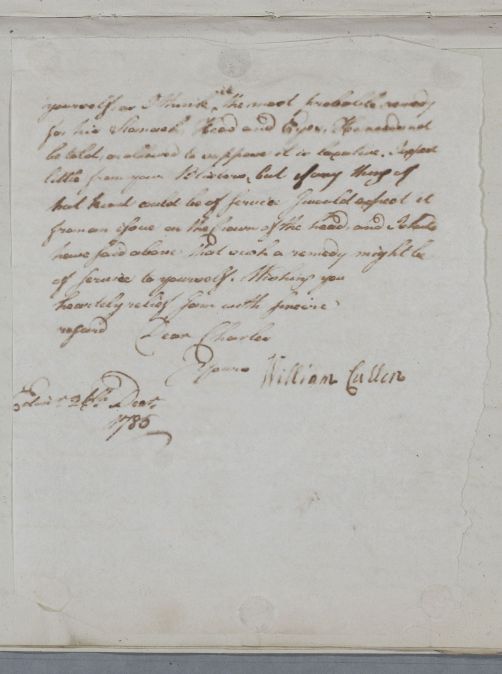 yourself, as I think it the most probable remedy
for his Stomach, Head and Eyes. He need not
be told, or allowed to suppose it is laxative. I expect
little from your Blisters, but if any thing of
that kind could be of service I would expect it
from an issue on the crown of the head and I
have said above that such a remedy might be
of service to yourself. Wishing you
heartily relief I am with sincere
regard Dear Charles
Yours William Cullen
26th
1785